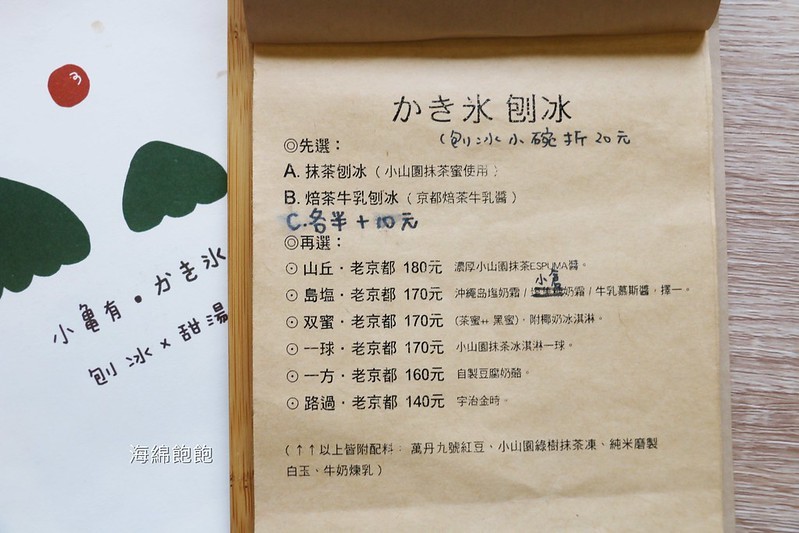 3
小龜有・かき氷
刨冰×甜湯
海綿飽飽
かき氷 刨冰
(刨冰小碗折20元
◎先選：
A. 抹茶刨冰（小山園抹茶蜜使用）
B. 焙茶牛乳刨冰（京都焙茶牛乳醬）
C.各半+10元
◎再選：
⊙ 山丘・老京都 180元 濃厚小山園抹茶ESPUMA醬。
⊙ 島塩・老京都 170元 沖繩島塩奶霜 / 小倉奶霜 / 牛乳慕斯醬，擇一。
⊙ 双蜜・老京都 170元 (茶蜜++ 黑蜜)，附椰奶冰淇淋。
⊙ 一球・老京都 170元 小山園抹茶冰淇淋一球。
⊙ 一方・老京都 160元 自製豆腐奶酪。
⊙ 路過・老京都 140元 宇治金時。
（↑↑以上皆附配料： 萬丹九號紅豆、小山園綠樹抹茶凍、純米磨製
白玉、牛奶煉乳）